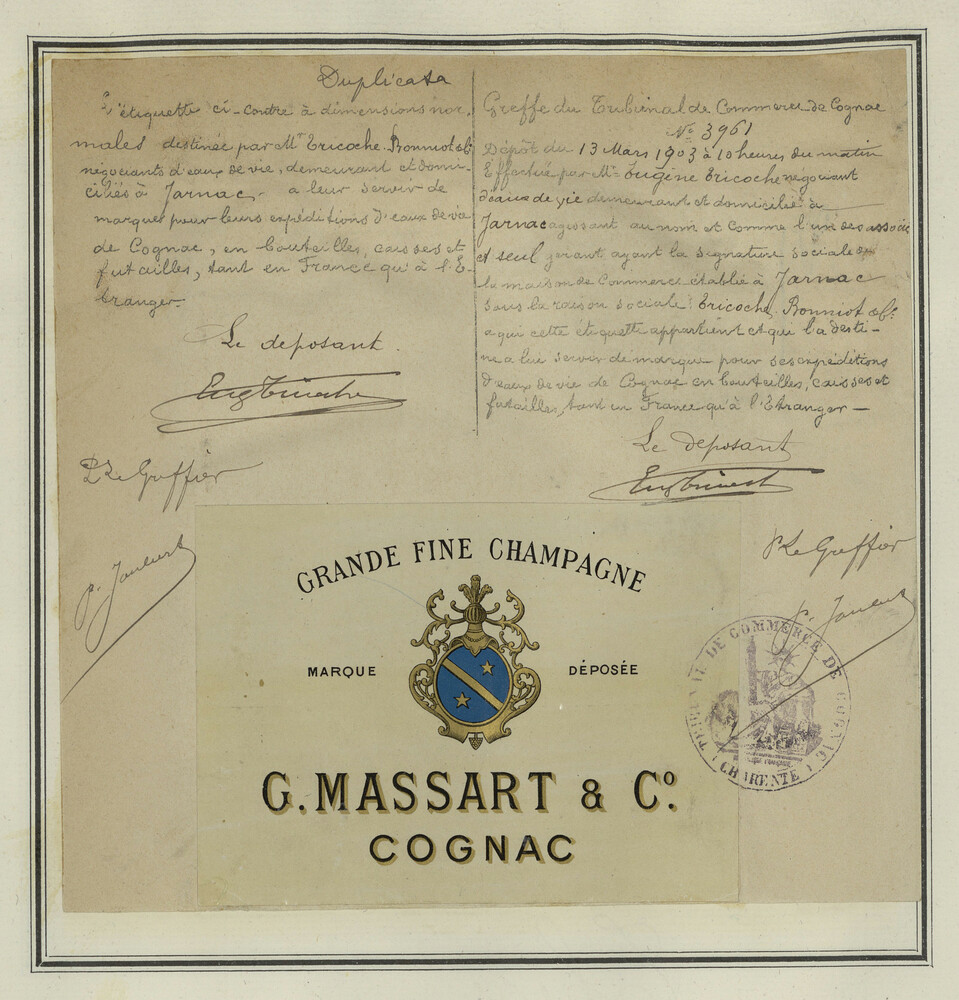 Duplicata
L'étiquette ci-contre à dimensions nor
males destinée par Mr Tricoche Bonniot & Cie
négociants d'eaux de vie, demeurant et domi-
ciliés à Jarnac, a leur servir de
marque pour leurs expéditions d'eaux de vie
de Cognac, en bouteilles, caisses et
futailles, tant en France qu'à l'E-
tranger.
Le deposant.
Eug Tricoche
Le Greffier
Greffe du Tribunal de Commerce de Cognac
No 3961
Dépôt du 13 Mars 1903 à 10 heures du matin
Effectué par Mr Eugène Tricoche négociant
d'eaux de vie demeurant et domicilié à
Jarnac agissant au nom et comme l'un des associés
et seul gérant ayant la signature sociale de
la maison de Commerce établie à Jarnac
sous la raison sociale: Tricoche, Bonniot & Cie
a qui cette étiquette appartient et qui l'a desti-
ne a lui servir de marque pour ses expéditions
d'eaux de vie de Cognac en bouteilles, caisses et
futailles, tant en France qu'à l'Etranger —
Le deposant
Eug Tricoche
Le Greffier
GRANDE FINE CHAMPAGNE
MARQUE DÉPOSÉE
G. MASSART & Co.
COGNAC
TRIBUNAL DE COMMERCE DE COGNAC
CHARENTE